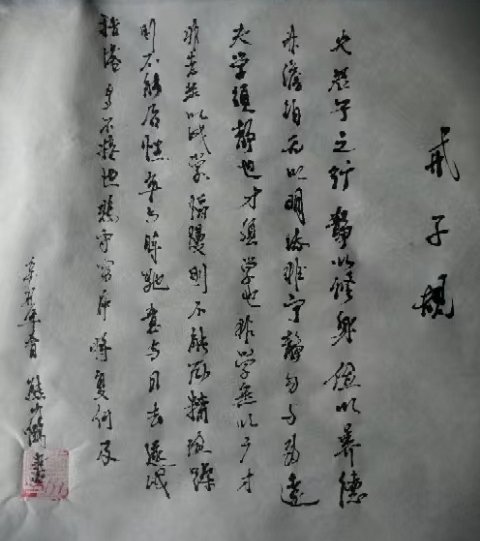 戒子規
夫君子之行静以修身俭以養德
非澹泊无以明非宁静
夫学須静也才須学也非学無以广才
非志無以成学慢则不能励精险躁
则不能治性年与时驰意与日去遂成
枯落多不接世悲守穷庐将复何及
年春 熊